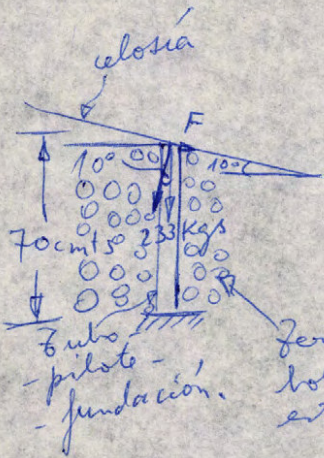 celosía
F
10°
10°
70 cmts
233 Kgs
Tubo
- pilote -
- fundación.